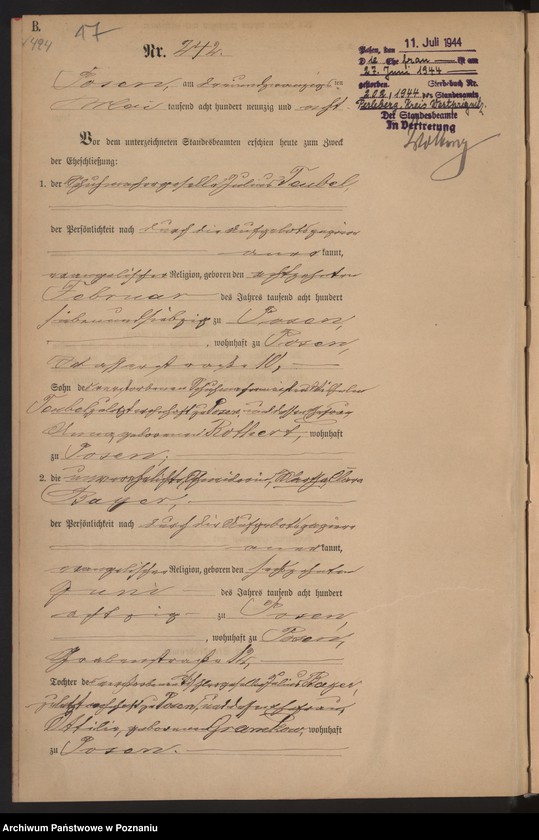 B.
1494
17
Nr. 242.
Posen, 11. Juli 1944
D ie Ehefrau ist am
27. Juni 1944
gestorben. Sterbebuch Nr.
202/1944 des Standesamts
Perleberg, Kreis Westprignitz
Der Standesbeamte
In Vertretung
Posen, am dreiundzwanzigsten
Mai tausend acht hundert neunzig und acht.
Vor dem unterzeichneten Standesbeamten erschien heute zum Zweck
der Eheschließung:
1. der Schuhmachergeselle Julius Teubel,
der Persönlichkeit nach durch die Aufgebotspapiere
aner kannt,
evangelischer Religion, geboren den achtzehnten
Februar des Jahres tausend acht hundert
siebenundsiebzig zu Posen,
, wohnhaft zu Posen,
10,
Sohn des verstorbenen Schuhmachermeisters Wilhelm
Teubel, zuletzt wohnhaft zu Posen, und dessen Ehefrau
Anna, geborenen Rothert, wohnhaft
zu Posen;
2. die unverehelichte Schneiderin, Martha Clara
Bayer,
der Persönlichkeit nach durch die Aufgebotspapiere
aner kannt,
evangelischer Religion, geboren den sechzehnten
Juni des Jahres tausend acht hundert
achtzig zu Posen,
, wohnhaft zu Posen,
Grabenstraße 12,
Tochter des verstorbenen Julius Bayer,
zuletzt wohnhaft zu Posen, und dessen Ehefrau,
Ottilie, geborenen Gramkow, wohnhaft
zu Posen.
Archiwum Państwowe w Poznaniu